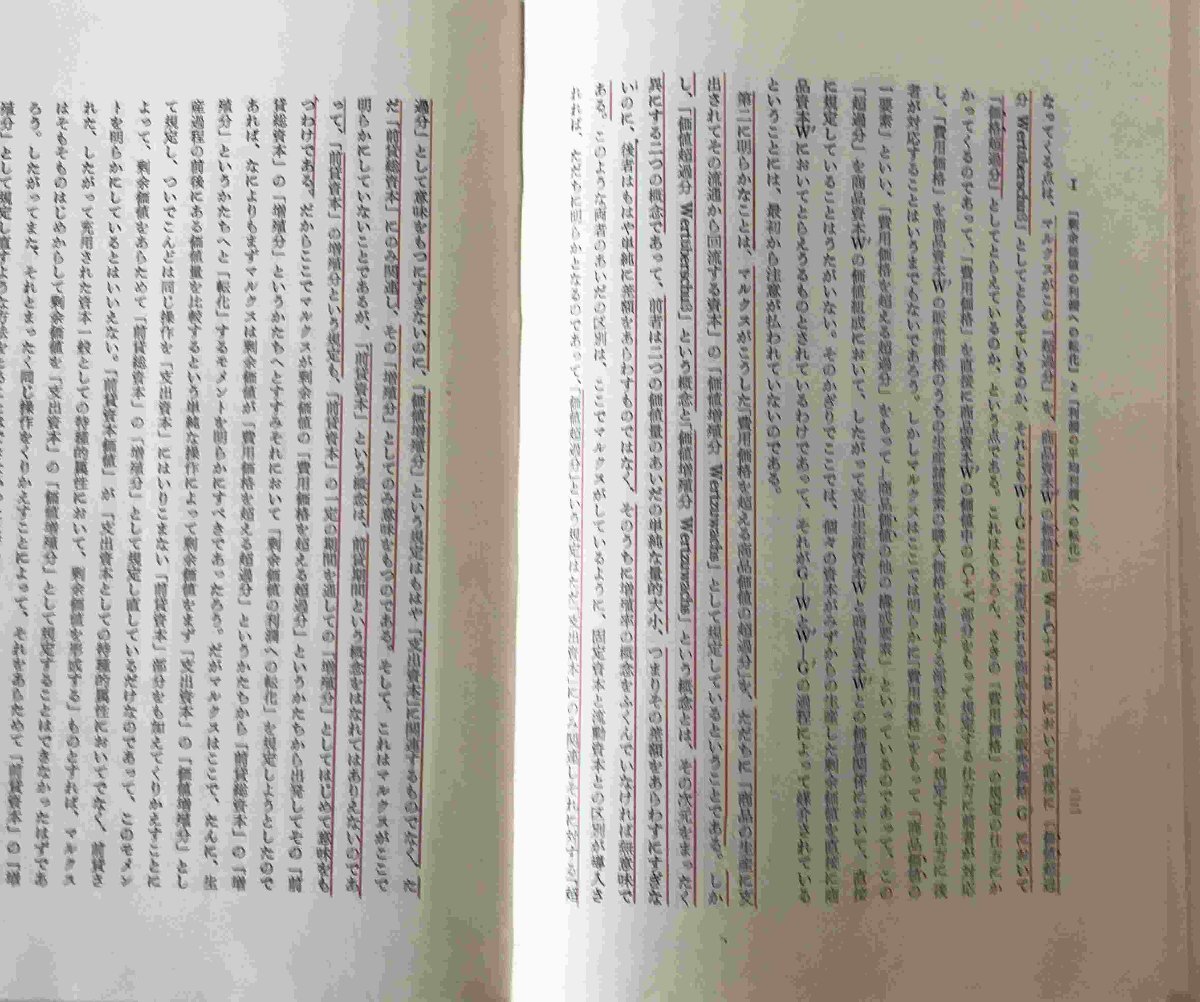 I 「剰余価値の利潤への転化」と「利潤の平均利潤への転化」
なってくる点は、マルクスがこの「超過分」を、商品資本W'の価値組成 W'=C+V+M において直接に「価値超過
分 Wertüberschuß」としてとらえているのか、それともW'―G'として実現される商品資本の販売価格 G' において
「価格超過分」としてとらえているのか、という点である。これはもちろん、さきの「費用価格」の規定の仕方にか
かってくるのであって、「費用価格」を直接に商品資本W'の価値中の C+V 部分をもって規定する仕方に前者が対応
し、「費用価格」を商品資本W'の販売価格のうちの生産諸要素の購入価格を填補する部分をもって規定する仕方に後
者が対応することはいうまでもないであろう。しかしマルクスはここでは明らかに「費用価格」をもって「商品価値の
一要素」といい、「費用価格を超える超過分」をもって「商品価値の他の構成要素」といっているのであって、この
「超過分」を商品資本W'の価値組成において、したがって支出生産資本Wと商品資本W'との価値関係において、直接
に規定していることはうたがいない。そのかぎりでここでは、個々の資本がみずからの生産した剰余価値を直接に商
品資本W'においてとらえうるものとされているわけであって、それがG―WとW'―G'の過程によって媒介されている
ということには、最初から注意が払われていないのである。
第二に明らかなことは、マルクスがこうした「費用価格を超える商品価値の超過分」を、ただちに「商品の生産に支
出されてその流通から回流する資本」の「価値増殖分 Wertzuwachs」として規定しているということである。しか
し、「価値超過分 Wertüberschuß」という概念と「価値増殖分 Wertzuwachs」という概念とは、その次元をまったく
異にする二つの概念であって、前者は二つの価値量のあいだの単純な量的大小、つまりその差額をあらわすにすぎな
いのに、後者はもはや単純に差額をあらわすものではなく、そのうちに増殖率の概念をふくんでいなければ無意味で
ある。このような両者のあいだの区別は、ここでマルクスがしているように、固定資本と流動資本との区別が導入さ
れれば、ただちに明らかとなるのであって、「価値超過分」という規定はただ「支出資本」にのみ関連しそれに対する「超
過分」として意味をもつにすぎないのに、「価値増殖分」という規定はもはや「支出資本」に関連するものでなく、た
だ「前貸総資本」にのみ関連し、その「増殖分」としてのみ意味をもつのである。そして、これはマルクスがここで
明らかにしていないことであるが、「前貸資本」という概念は、前貸期間という概念をはなれてはありえないのであ
って、「前貸資本」の増殖分という規定も、「前貸資本」の一定の期間を通しての「増殖分」としてはじめて意味をも
つわけである。だからここでマルクスが剰余価値の「費用価格を超える超過分」というかたちから出発してその「前
貸総資本」の「増殖分」というかたちへとすすみそれにおいて「剰余価値の利潤への転化」を規定しようとしたので
あれば、なによりもまずマルクスは剰余価値が「費用価格を超える超過分」というかたちから「前貸総資本」の「増
殖分」というかたちへと「転化」するモメントを明らかにすべきであったろう。だがマルクスはここで、たんに、生
産過程の前後にある価値量を比較するという単純な操作によって剰余価値をまず「支出資本」の「価値増殖分」とし
て規定し、ついでこんどは同じ操作を「支出資本」にはいりこまない「前貸資本」部分をも加えてくりかえすことに
よって、剰余価値をあらためて「前貸総資本」の「増殖分」として規定し直しているだけなのであって、このモメン
トを明らかにしているとはいいえない。「前貸資本価値」が「支出資本としての特種的属性においてでなく、前貸さ
れた、したがって充用された資本一般としての特種的属性において、剰余価値を形成する」ものとすれば、マルクス
はそもそものはじめからして剰余価値を「支出資本」の「価値増殖分」として規定することはできなかったはずであ
ろう。したがってまた、それとまったく同じ操作をくりかえすことによって、それをあらためて「前貸資本」の「増
殖分」として規定し直すような方法を